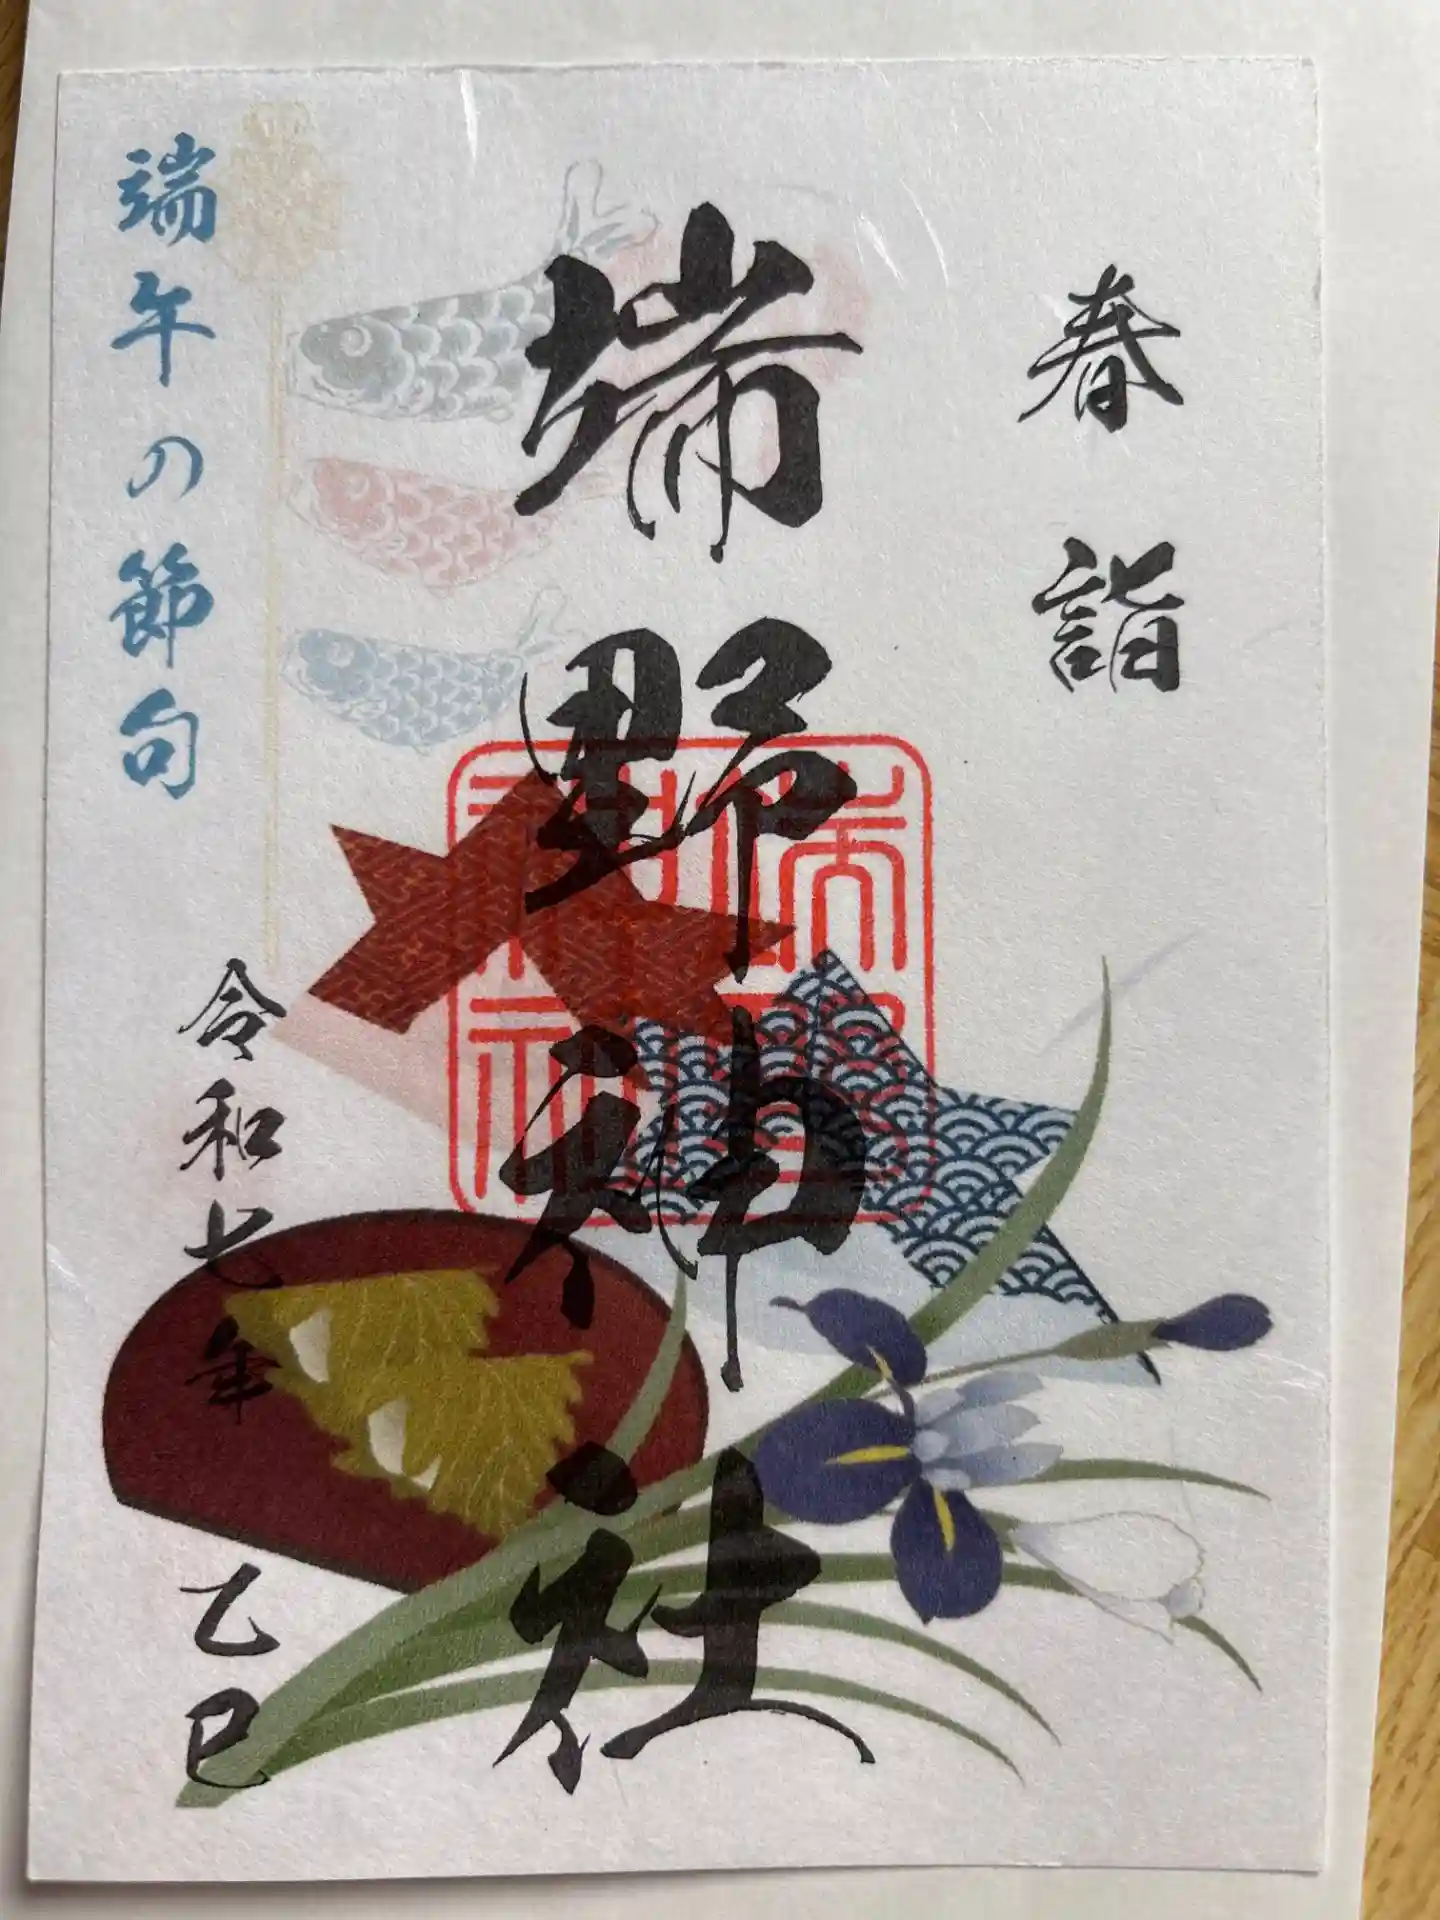 春詣
端野神社
端午の節句
令和七年 乙巳